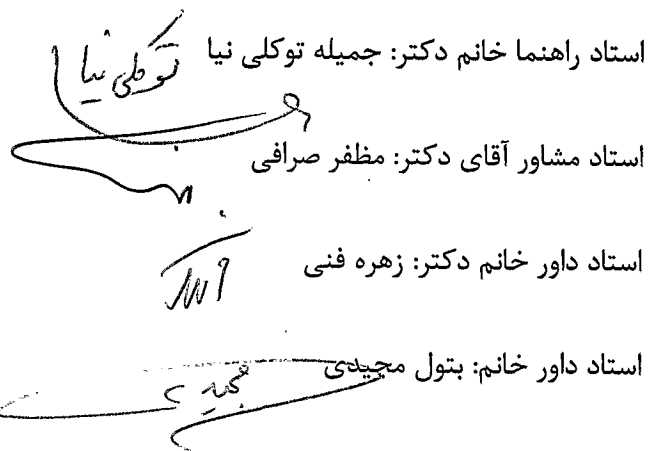 استاد راهنما خانم دکتر: جمیله توکلی نیا توکلی نیا
استاد مشاور آقای دکتر: مظفر صرافی
استاد داور خانم دکتر: زهره فنی
استاد داور خانم: بتول مجیدی مجیدی